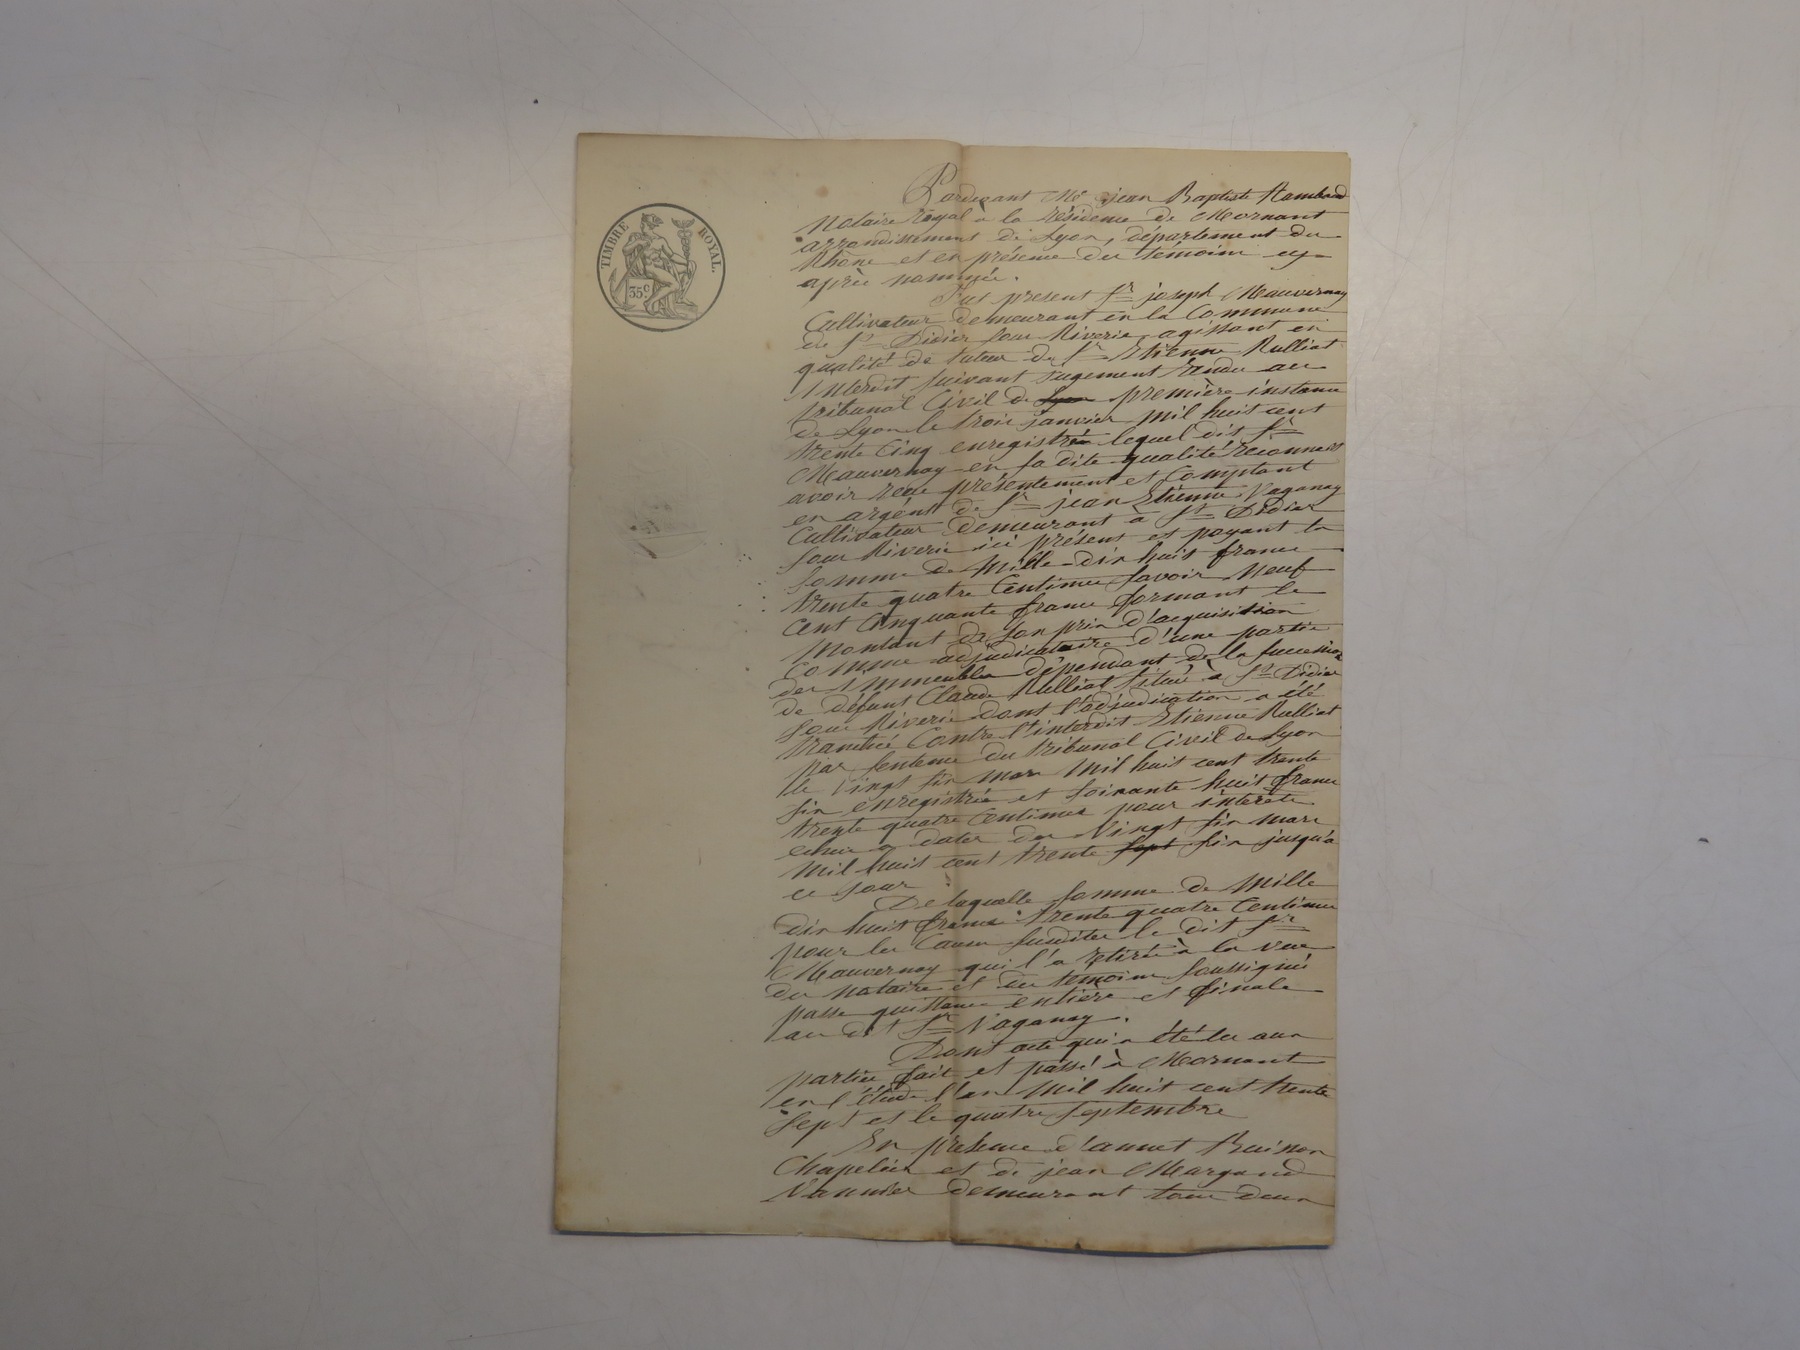 TIMBRE ROYAL.
35 c.
Pardevant Me jean Baptiste
Notaire Royal à la résidence de Mornant
arrondissement de Lyon, département du
Rhône et en présence des témoins cy
après nommés.
Fut présent Sr joseph Mauvernay
Cultivateur demeurant en la Commune
de St Didier sous Riverie, agissant en
qualité de tuteur de Sr Etienne Rulliat
Interdit suivant Jugement rendu au
tribunal Civil de Lyon première instance
de Lyon le trois janvier mil huit cent
trente Cinq enregistré lequel dit Sr
Mauvernay en sa dite qualité reconnert
avoir reçu présentement et Comptant
en argent de Sr jean Etienne Vaganay
Cultivateur demeurant à St Didier
sous Riverie ici présent et payant la
somme de Mille dix huit francs
trente quatre Centimes savoir Neuf
cent Cinquante francs formant le
montant de son prix d'acquisition
comme adjudicataire d'une partie
des Immeubles dépendant de la succession
de défunt Claude Rulliat situés à St Didier
sous Riverie dont l'adjudication a été
tranchée Contre l'interdit Etienne Rulliat
par sentence du tribunal Civil de Lyon
le Vingt six mars Mil huit cent trente
six enregistrée et soixante huit francs
trente quatre Centimes pour intérêts
échus à dater du Vingt six mars
Mil huit cent trente sept six jusqu'à
ce jour
De laquelle somme de Mille
dix huit francs trente quatre Centimes
pour les Causes susdites le dit Sr
Mauvernay qui l'a retirée à la vue
du notaire et des témoins soussignés
passe quittance entière et finale
au dit Sr Vaganay.
Dont acte qui a été lu aux
parties fait et passé à Mornant
en l'étude l'an Mil huit cent trente
Sept et le quatre Septembre
En présence d'annet
Chapelier et de jean Margand
Vannier demeurant tous deux